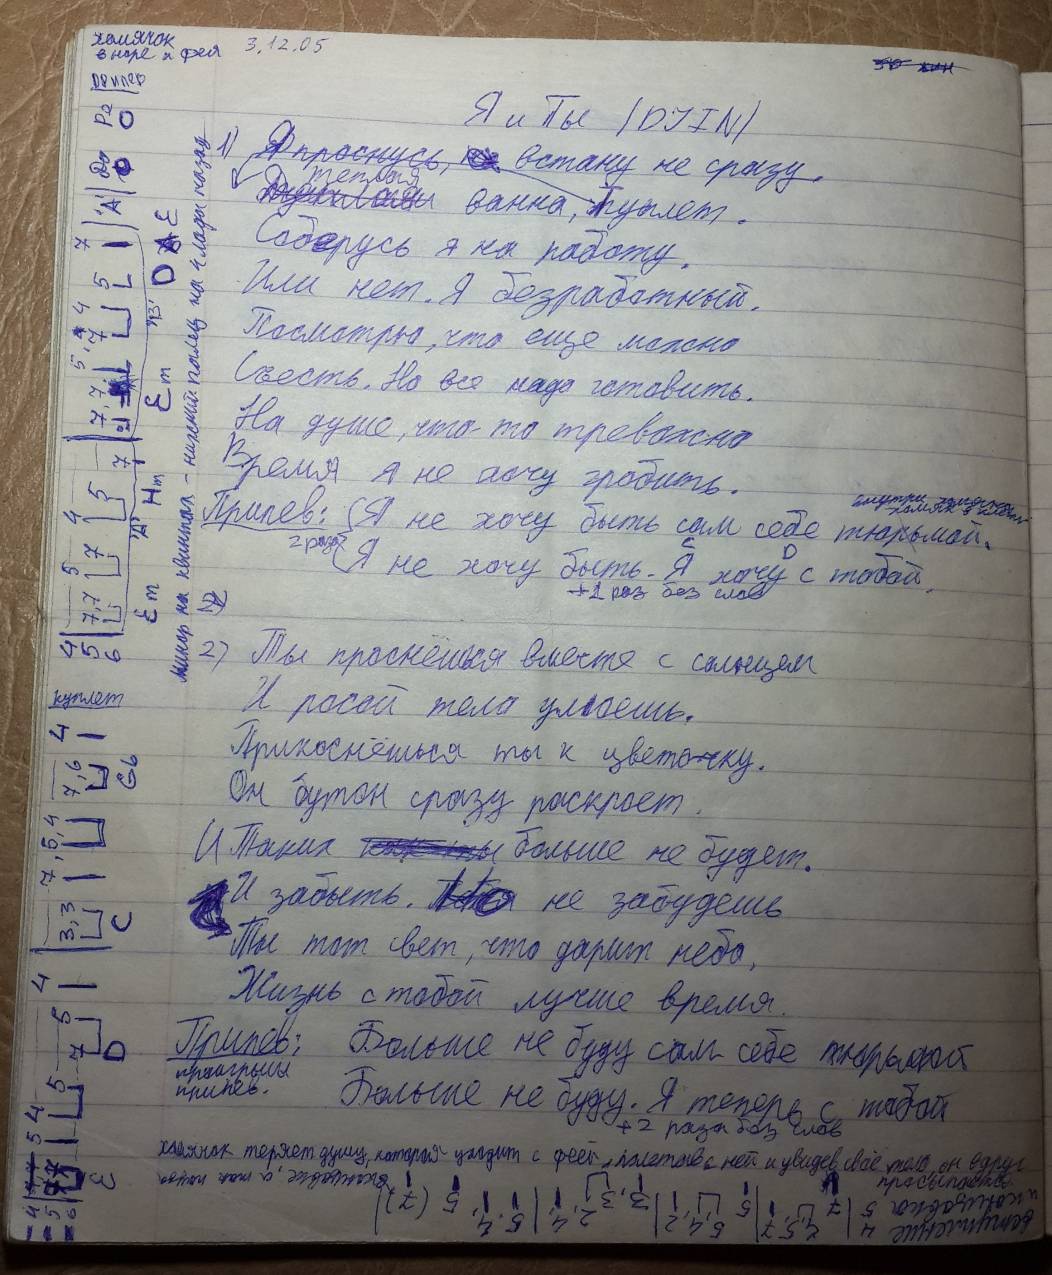 хомячок
в норе и фея 3.12.05
Я и Ты (DJIN)
1) Я проснусь, встану не сразу.
теплая
ванна, туалет.
Соберусь я на работу.
Или нет. Я безработный.
Посмотрю, что еще можно
Съесть. Но все надо готовить.
На душе, что-то тревожно
Время я не хочу гробить.
Припев: Я не хочу быть сам себе тюрьмой.
2 раза
C D
Я не хочу быть. Я хочу с тобой.
+1 раз без слов
2) Ты проснёшься вместе с солнцем
И росой тело умоешь.
Прикоснёшься ты к цветочку.
Он бутон сразу раскроет.
И Таких больше не будет.
И забыть. Но не забудешь
Ты тот свет, что дарит небо,
Жизнь с тобой лучше время.
Припев: Больше не буду сам себе тюрьмой
проигрыш
припев.
Больше не буду. Я теперь с тобой
+2 раза без слов
хомячок теряет душу, которая уходит с феей, полетав с ней и увидев своё тело он вдруг
просыпается
вступление
и концовка
4
5
7 4,5,7 5 5,4,2 3,3, 2,4, 5,4, 5 (7)
минор на квинтах - нижний палец на 4 лада назад
припев
куплет
4
5
6
7,7 7 5 7
Em Hm Em D A E
3,3 7 5,4 7,6 4
C G6
E D